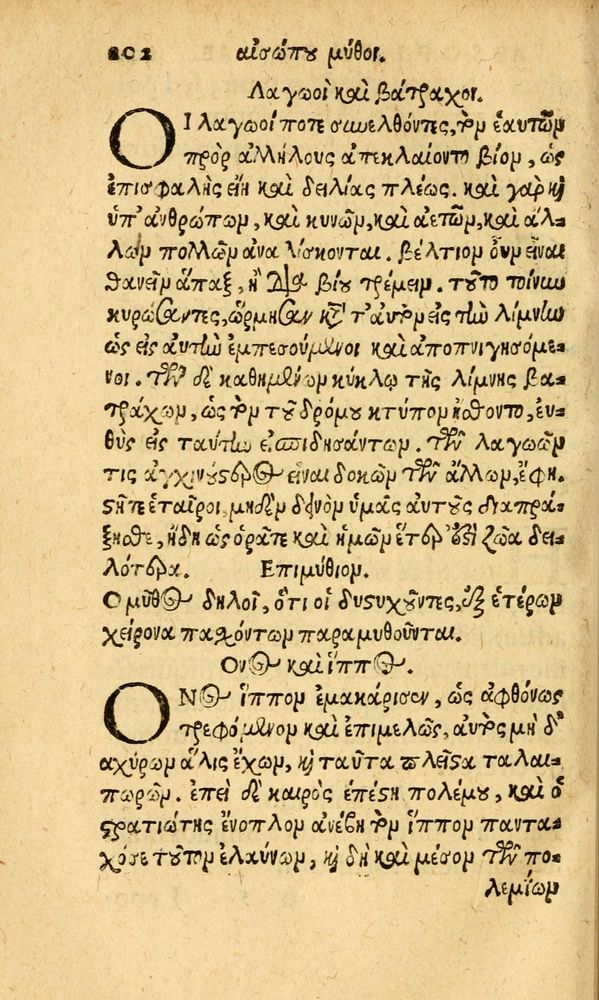 202 αἰσώπου μῦθοι.
Λαγωοὶ καὶ βάτραχοι.
Οἱ λαγωοί ποτε συνελθόντες, τὸν ἑαυτῶν
πρὸς ἀλλήλους ἀπεκλαίοντο βίον, ὡς
ἐπισφαλὴς εἴη καὶ δειλίας πλέως. καὶ γὰρ καὶ
ὑπ' ἀνθρώπων, καὶ κυνῶν, καὶ ἀετῶν, καὶ ἄλ-
λων πολλῶν ἀναλίσκονται. βέλτιον οὖν εἶναι
θανεῖν ἅπαξ, ἢ διὰ βίου τρέμειν. τοῦτο τοίνυν
κυρώσαντες, ὥρμησαν κατὰ τ' αὐτὸν εἰς τὴν λίμνην
ὡς εἰς αὐτὴν ἐμπεσούμενοι καὶ ἀποπνιγησόμε-
νοι. τῶν δὲ καθημένων κύκλῳ τῆς λίμνης βα-
τράχων, ὡς τὸν τοῦ δρόμου κτύπον ᾔσθοντο, εὐ-
θὺς εἰς ταύτην εἰσπιδησάντων. τῶν λαγωῶν
τις ἀγχινούστερος εἶναι δοκῶν τῶν ἄλλων, ἔφη.
στῆτε ἑταῖροι, μηδὲν δεινὸν ὑμᾶς αὐτοὺς διαπρά-
ξησθε, ἤδη ὡς ὁρᾶτε καὶ ἡμῶν ἕτερ' ἐστὶ ζῶα δει-
λότερα. Ἐπιμύθιον.
Ὁ μῦθος δηλοῖ, ὅτι οἱ δυστυχοῦντες, ἐξ ἑτέρων
χείρονα παθόντων παραμυθοῦνται.
Ὄνος καὶ ἵππος.
Ὄνος ἵππον ἐμακάρισεν, ὡς ἀφθόνως
τρεφόμενον καὶ ἐπιμελῶς, αὐτὸς μὴ δ'
ἀχύρων ἅλις ἔχων, καὶ ταῦτα πλεῖστα ταλαι-
πωρῶν. ἐπεὶ δὲ καιρὸς ἐπέστη πολέμου, καὶ ὁ
στρατιώτης ἔνοπλον ἀνέβη τὸν ἵππον παντα-
χόσε τοῦτον ἐλαύνων, καὶ δὴ καὶ μέσον τῶν πο-
λεμίων